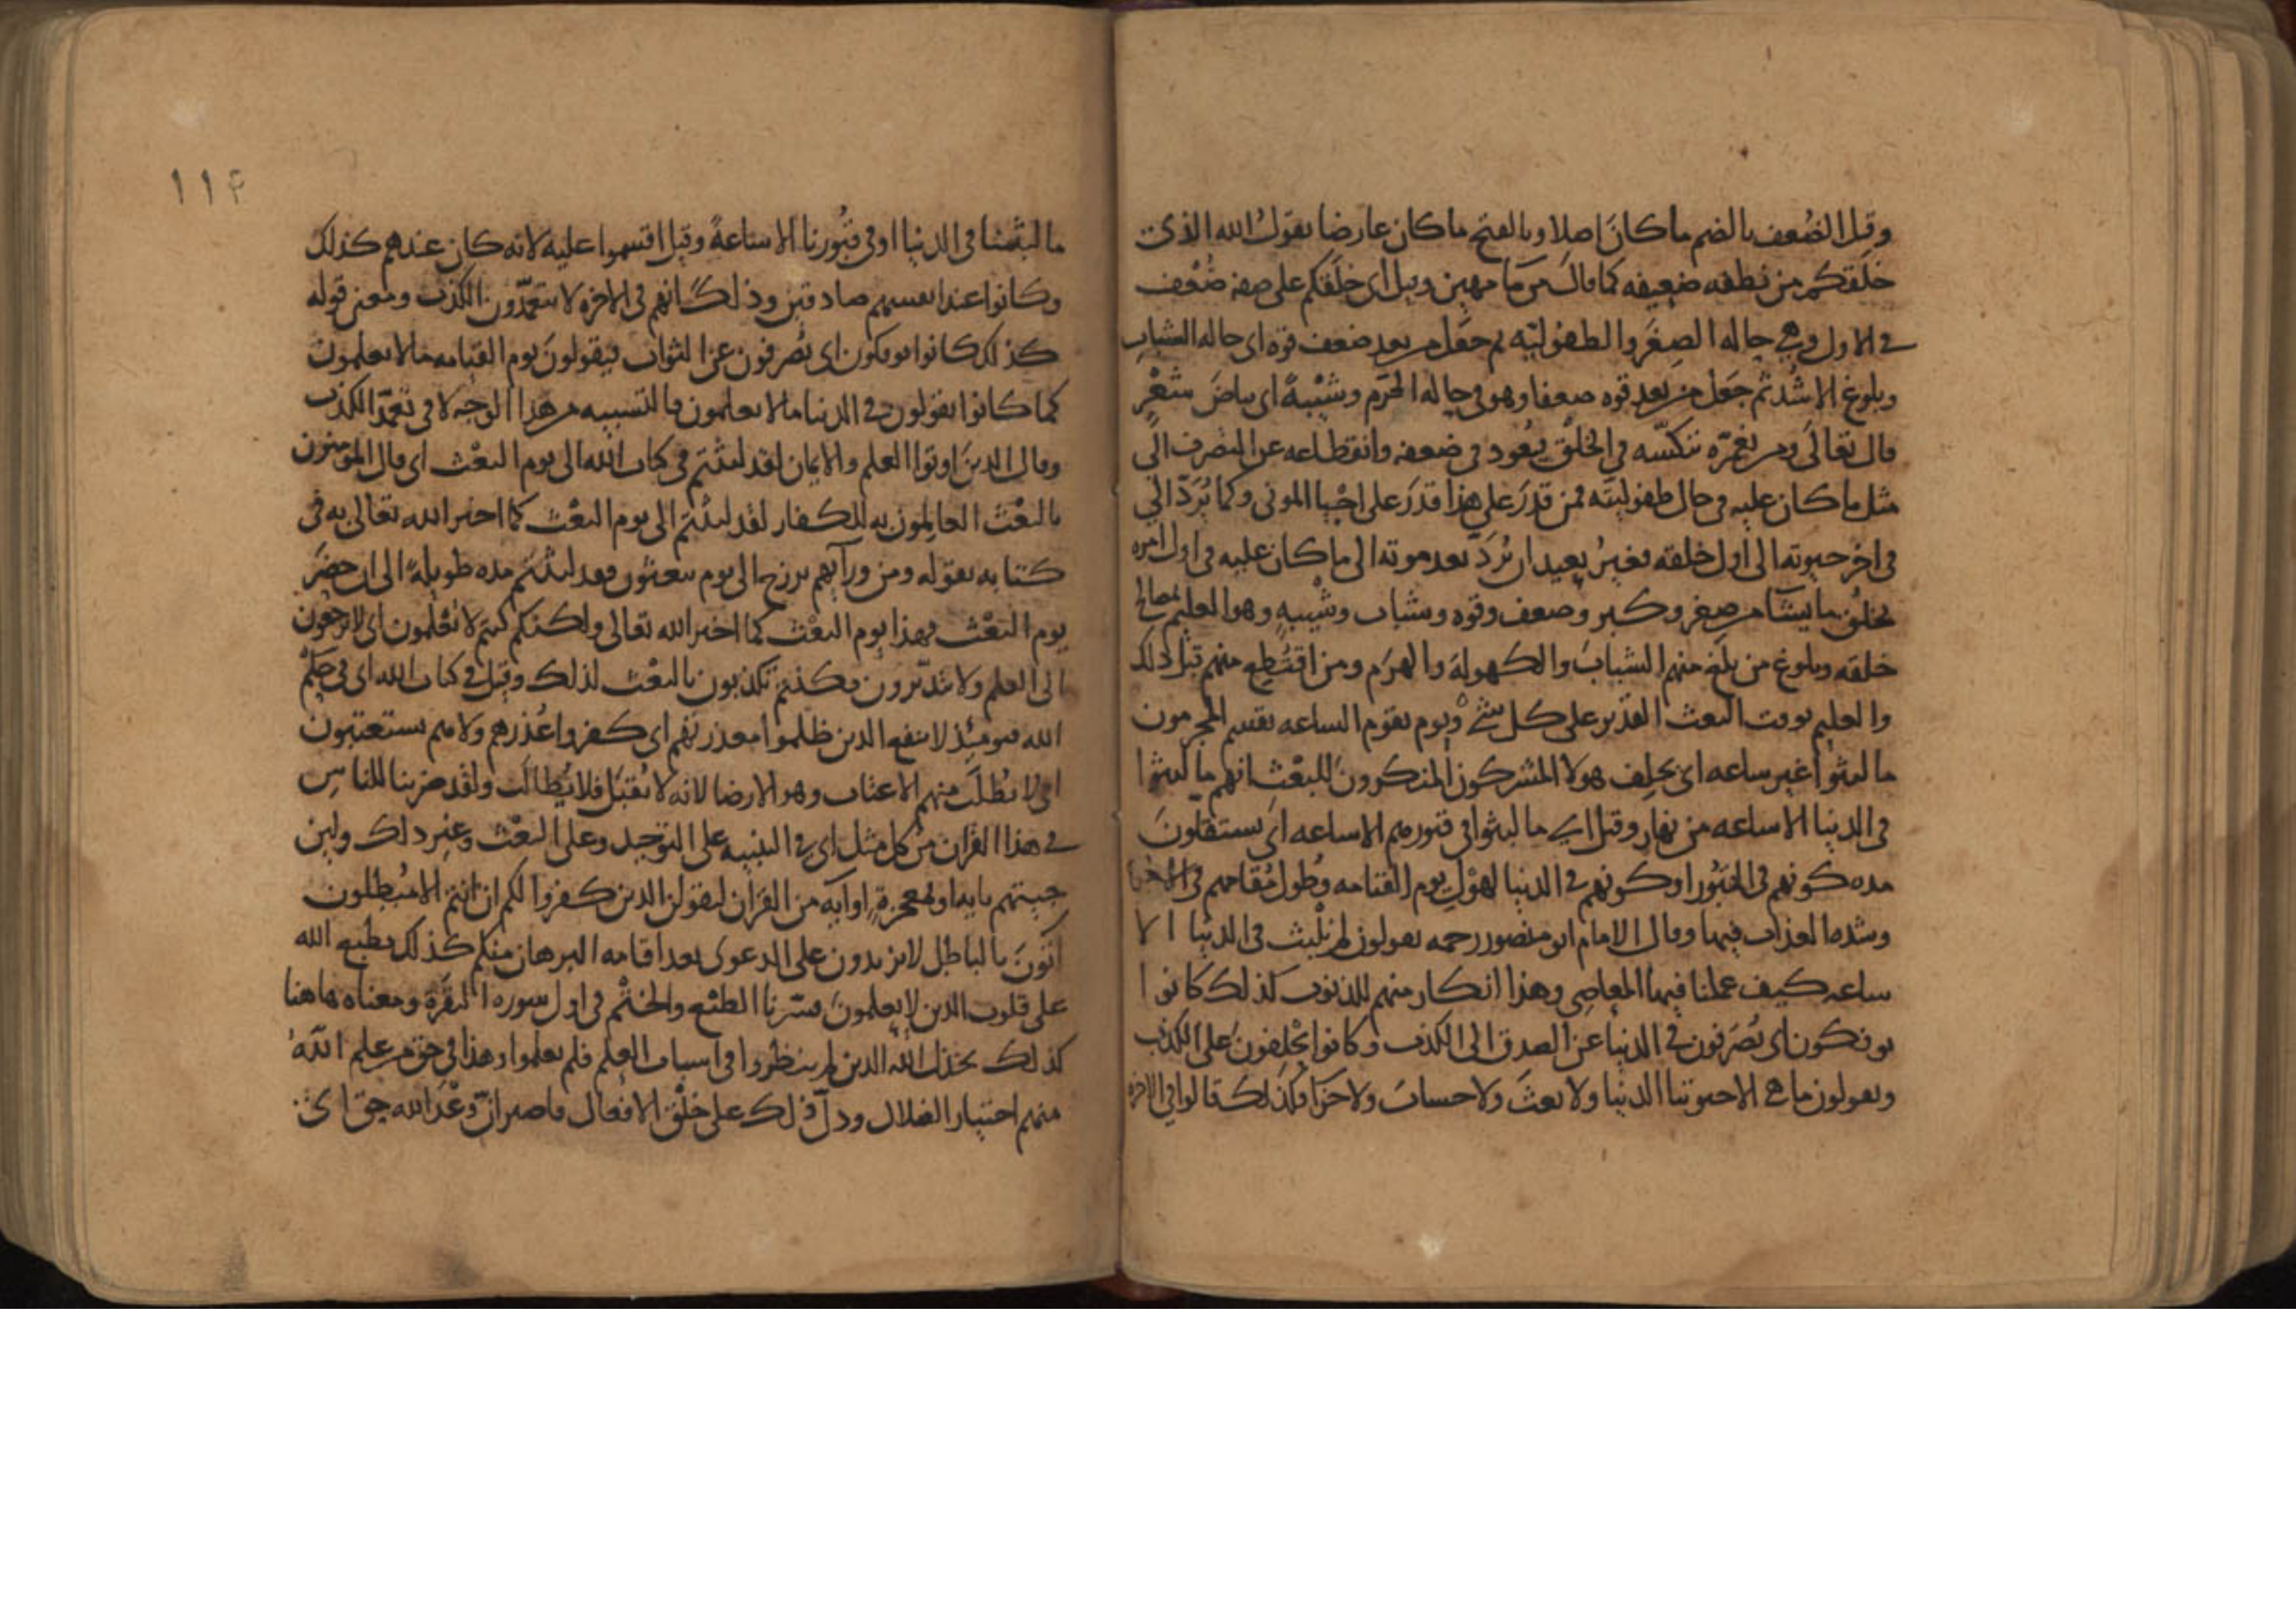 وقيل الضُعف بالضم ما كانَ اصلا وبالفتح ما كان عارضا يقولُ الله الذى
خلقكم من نطفه ضعيفه كما قال من ما مهين وقيل اى خلقكم على صفه ضُعْف
فى الاول وهى حاله الصِغَر والطفوليّه ثم جعل من بعد ضعف قوه اى حاله الشباب
وبلوغ الاشُد ثم جعل من بعد قوه ضعفا وهو فى حاله الهَرَم وشَيْبةً اى بياضَ شَعْرٍ
قال تعالى ومن نعمّره ننكّسه فى الخلق يعُود فى ضعفه وانقطاعه عن التصرف الى
مثل ما كان عليه فى حال طفوليته فمن قدرَ على هذا قدرَ على احيا الموتى وكما يُرَدّ الىّ
فى اخر حيوته الى اول خلقه فغيرُ بعيد ان يُرَدّ بعد موته الى ما كان عليه فى اول امره
يخلُق ما يشا من صغر وكبر وضعف وقوه وشباب وشيْبهٍ وهو العليم بمصالح
خلقه وبلوغ من بلغ منهم الشبابَ والكهولةَ والهرَم ومن اقتُطِع منهم قبْل ذلك
والعليم بوقت البعث القدير على كل شىْ ويوم تقوم الساعه يقسم المجرمون
ما لبثوا غير ساعه اى يحلِف هولا المشركون المنكرون للبعْث انهم ما لبثوا
فى الدنيا الا ساعه من نهار وقيل اى ما لبثوا فى قبورهم الا ساعه اى يستقلّونَ
مده كونهم فى القبُور او كونهم فى الدنيا لهوْل يوم القيامه وطُول مُقامهم فى
وشده العذاب فيها وقال الامام ابو منصور رحمه يقولون لم نلْبث فى الدنيا الا
ساعه كيف عملنا فيها المعاصى وهذا انكار منهم للذنوب كذلك كانوا
يوفكون اى يُصَرفون فى الدنيا عن الصدق الى الكذب وكانوا يحْلِفونَ على الكذب
ويقولون ما هى الا حيوتنا الدنيا ولا بعثَ ولا حسابَ ولا جَزَا فكذلك قالوا فى الاخره
١١٤
ما لبثْنا فى الدنيا او فى قبُورنا الا ساعةً وقيل اقسموا عليه لانه كان عندهم كذلك
وكانوا عند انفسهم صادقين وذلك انهم فى الاخره لا يتعمّدون الكذب ومعنى قوله
كذلك كانوا يوفكون اى يُصرفون عن الثواب فيقولونَ يوم القيامه ما لا يعلمون
كما كانوا يقولون فى الدنيا ما لا يعلمون فالتشبيه من هذا الوجه لا فى تعمّد الكذب
وقال الذينَ اوتوا العلم والايمان لقد لبثتم فى كتاب الله الى يوم البعْث اى قال المؤمنون
بالبعْث العالِمون به للكفار لقد لبثتم الى يوم البعْث كما اخبر الله تعالى به فى
كتابه بقوله ومن ورآيهم برزخ الى يوم يبعثون فقد لبثتم مده طويلهً الى ان حضَر
يوم البعْث فهذا يوم البعْث كما اخبر الله تعالى ولكنكم كنتم لا تعْلمون اى لا ترجعون
الى العلم ولا تتدبّرون فكنتم تكذبون بالبعْث لذلك وقيل فى كتاب الله اى فى حكْم
الله فيومئِذ لا ينفع الذين ظلموا معذرتهم اى كفروا عُذرهم ولا هم يستعتبون
اى لا يُطلَب منهم الاعتاب وهو الارضا لانه لا يُقبَل فلا يُطالَب ولقد ضربنا للناس
فى هذا القران من كل مثل اى فى التنبيه على التوحيد وعلى البعْث وغير ذلك ولين
جيتهم بايه اى بمعجزةٍ او آيه من القران ليقولن الذين كفروا الكم ان انتم الا مُبْطلون
اتُونَ بالباطل لا تزيدون على الدعوى بعد اقامه البرهان منكم كذلك يطبع الله
على قلوب الذين لا يعلمونَ فسّرنا الطبْع والختْم فى اول سوره البقَرة ومعناه هاهنا
كذلك يخذل الله الذين لم ينظروا فى اسباب العلم فلم يعلموا وهذا فى حق من علم اللهُ
منهم اختيار الضلال ودلّ ذلك على خلْق الافعال فاصبر انّ وعْدَ الله حق اى